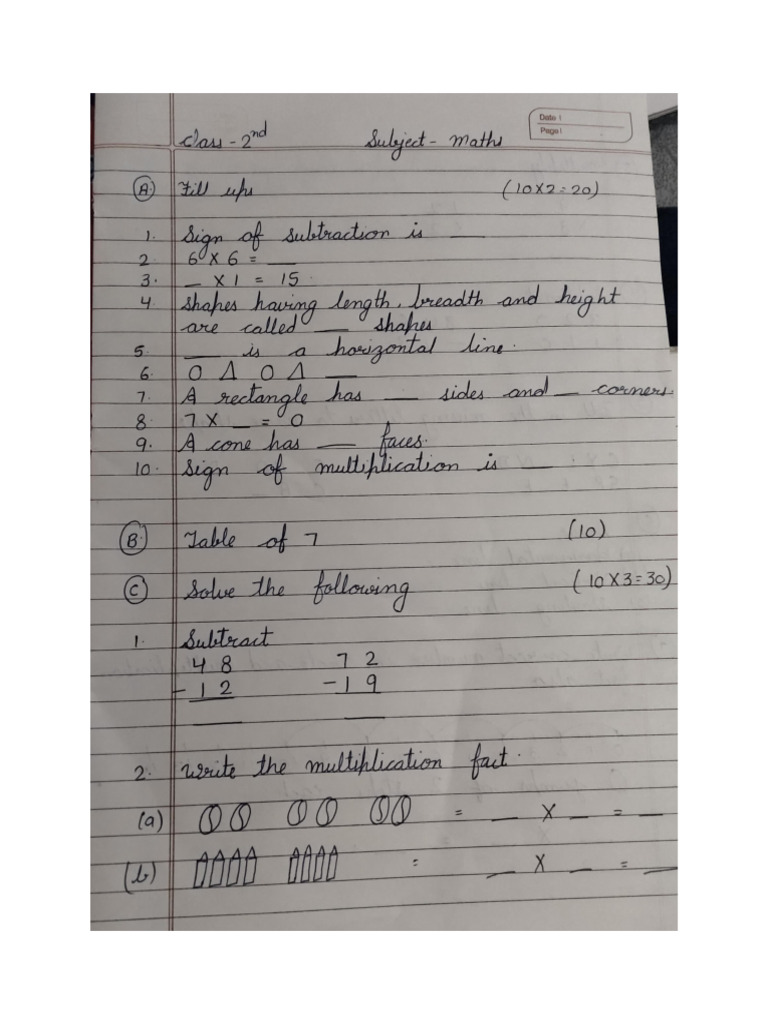 Date :
Page :
Class - 2nd Subject - Maths
(A) Fill ups (10X2=20)
1. Sign of subtraction is __
2. 6 X 6 = __
3. _ X 1 = 15.
4 Shapes having length, breadth and height
are called __ shapes
5. __ is a horizontal line.
6. O Δ O Δ __
7. A rectangle has __ sides and _ corners.
8. 7 X _ = 0
9. A cone has __ faces.
10. Sign of multiplication is __
(B) Table of 7 (10)
(C) Solve the following (10X3=30)
1. Subtract
4 8 7 2
- 1 2 - 1 9
2. Write the multiplication fact.
(a) = _ X _ = _
(b) = _ X _ = _